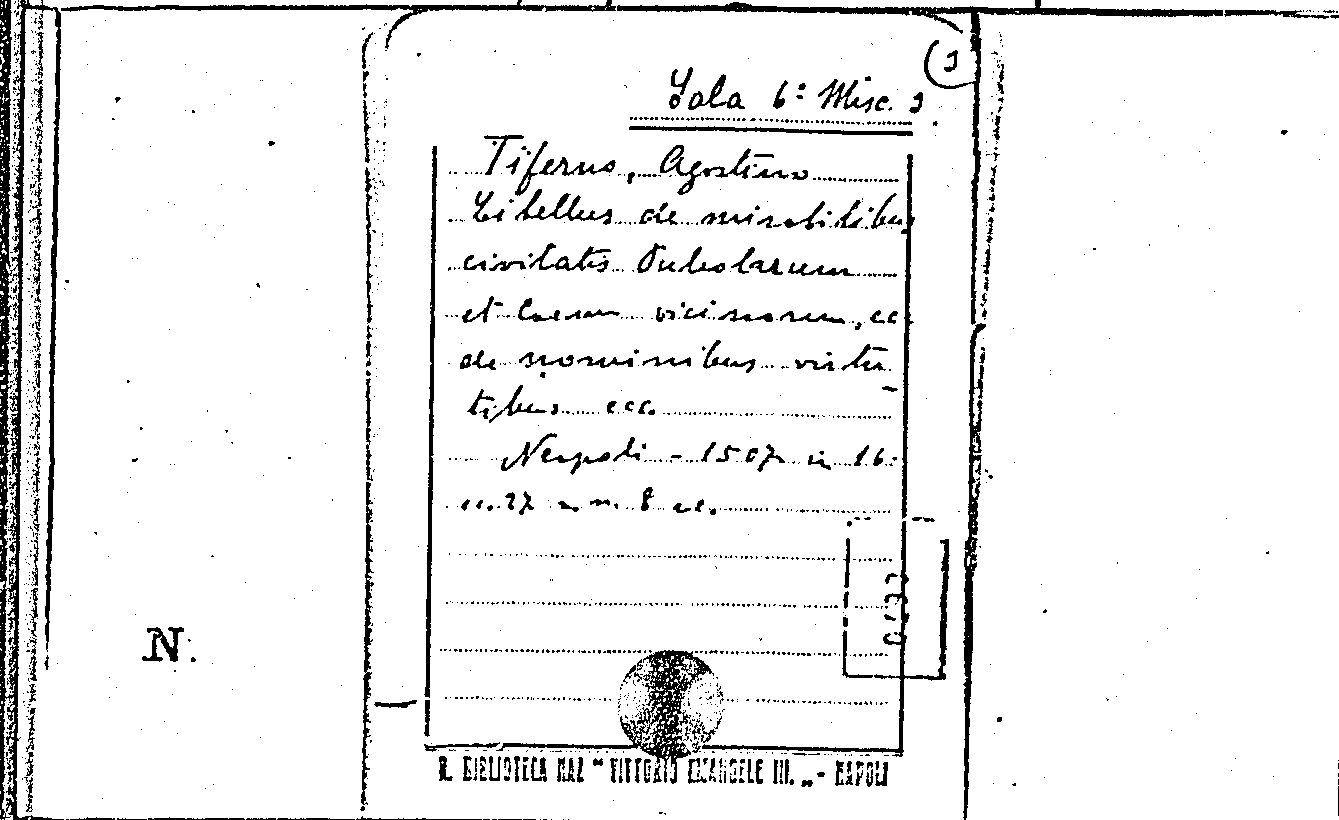 (J
Sala 6ª Misc. J
Tifernus, Agostino
Libellus de mirabilibus
civitatis Puteolarum
et locorum vicinorum, ec
de nominibus virtu
tibus ecc.
Napoli - 1507 in 16.
cc. 27 n. n. 8 cc.
N.
R. BIBLIOTECA NAZ "VITTORIO EMANUELE III." - NAPOLI